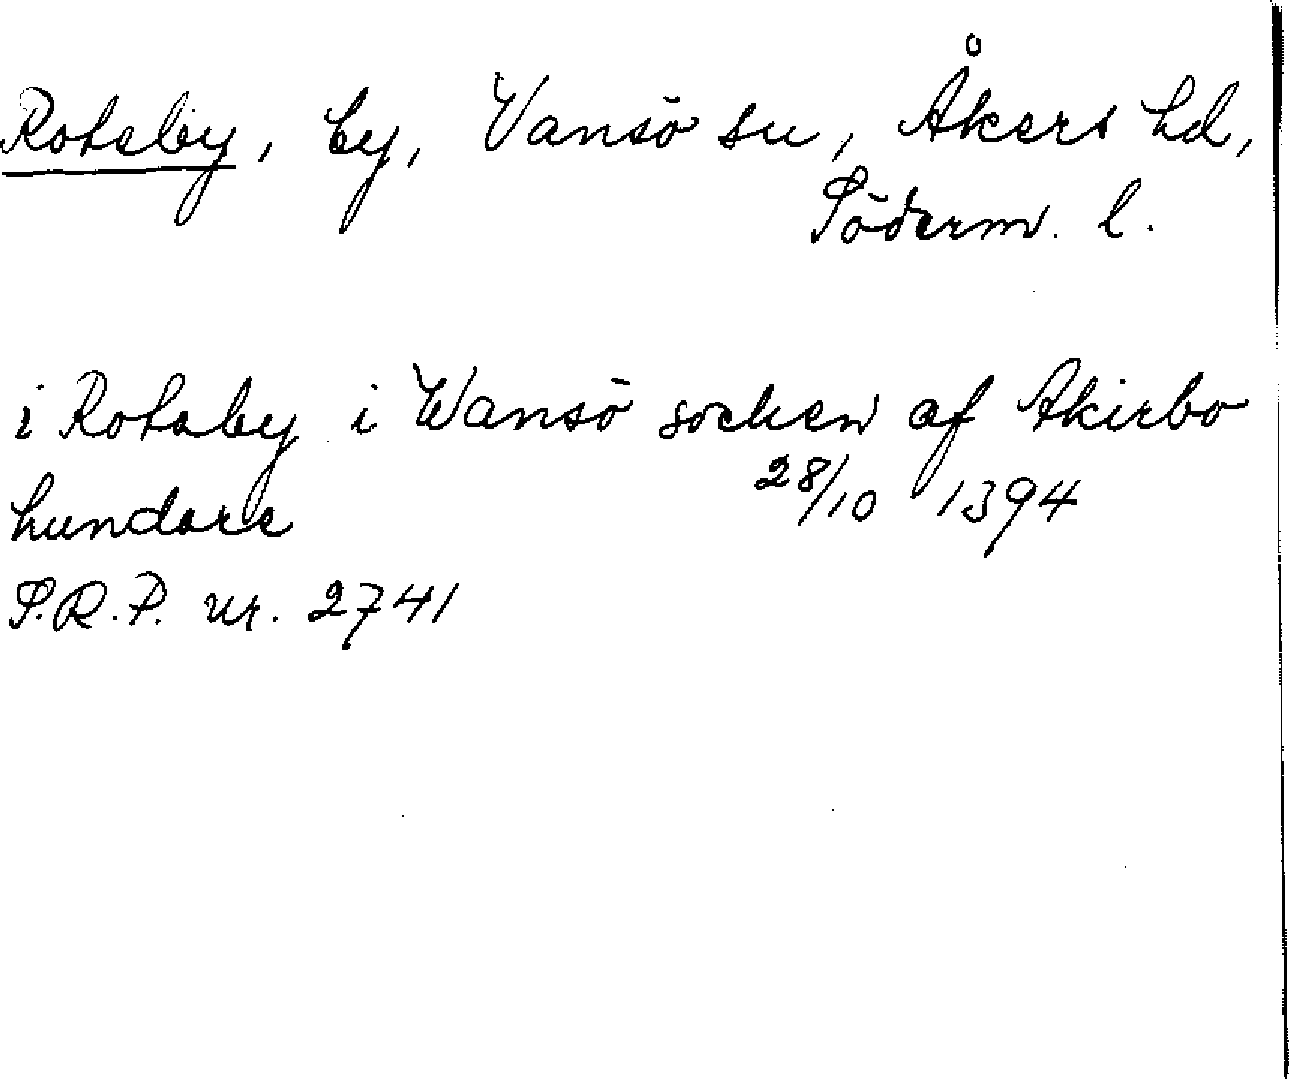 Rotsby, by, Vansö sn, Åkers hd,
Söderm. l.
i Rotsby i Wansö sochen af Akirbo
hundare 28/10 1394
S.R.P. nr. 2741